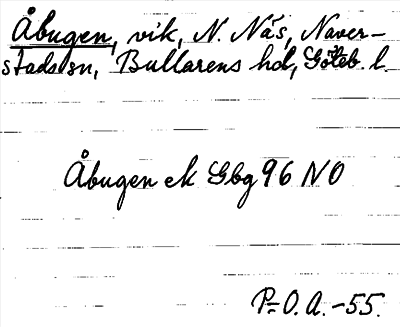 Åbugen, vik, N. Näs, Naver-
stads sn, Bullarens hd, Göteb. l.
Åbugen ek Gbg 96 NO
P-O.A.-55.